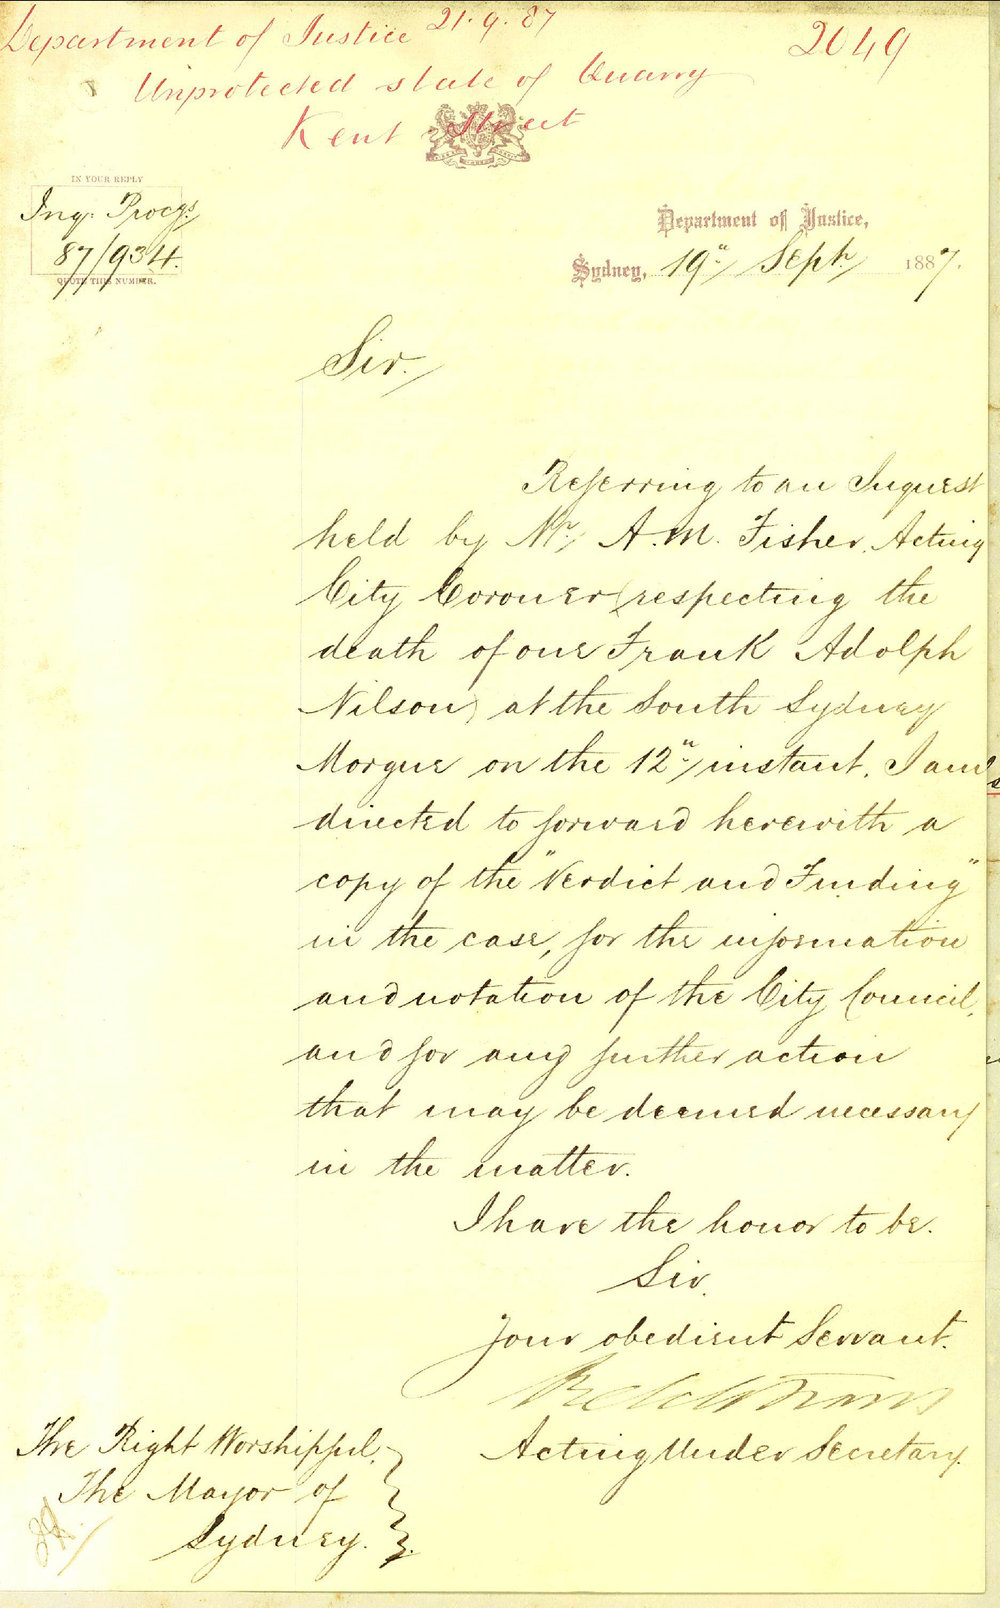 Department of Justice 21.9.87
2049
Unprotected state of Quarry
Kent Street
IN YOUR REPLY
Inq. Procgs
87/934.
QUOTE THIS NUMBER.
Department of Justice,
Sydney, 19th Sept. 1887.
Sir.
Referring to an Inquest
held by Mr. A.M. Fisher, Acting
City Coroner (respecting the
death of one Frank Adolph
Nilson) at the South Sydney
Morgue on the 12th instant, I am
directed to forward herewith a
copy of the "Verdict and Finding"
in the case, for the information
and notation of the City Council,
and for any further action
that may be deemed necessary
in the matter.
I have the honor to be.
Sir.
Your obedient Servant.
Acting Under Secretary.
The Right Worshipful,
The Mayor of
Sydney.